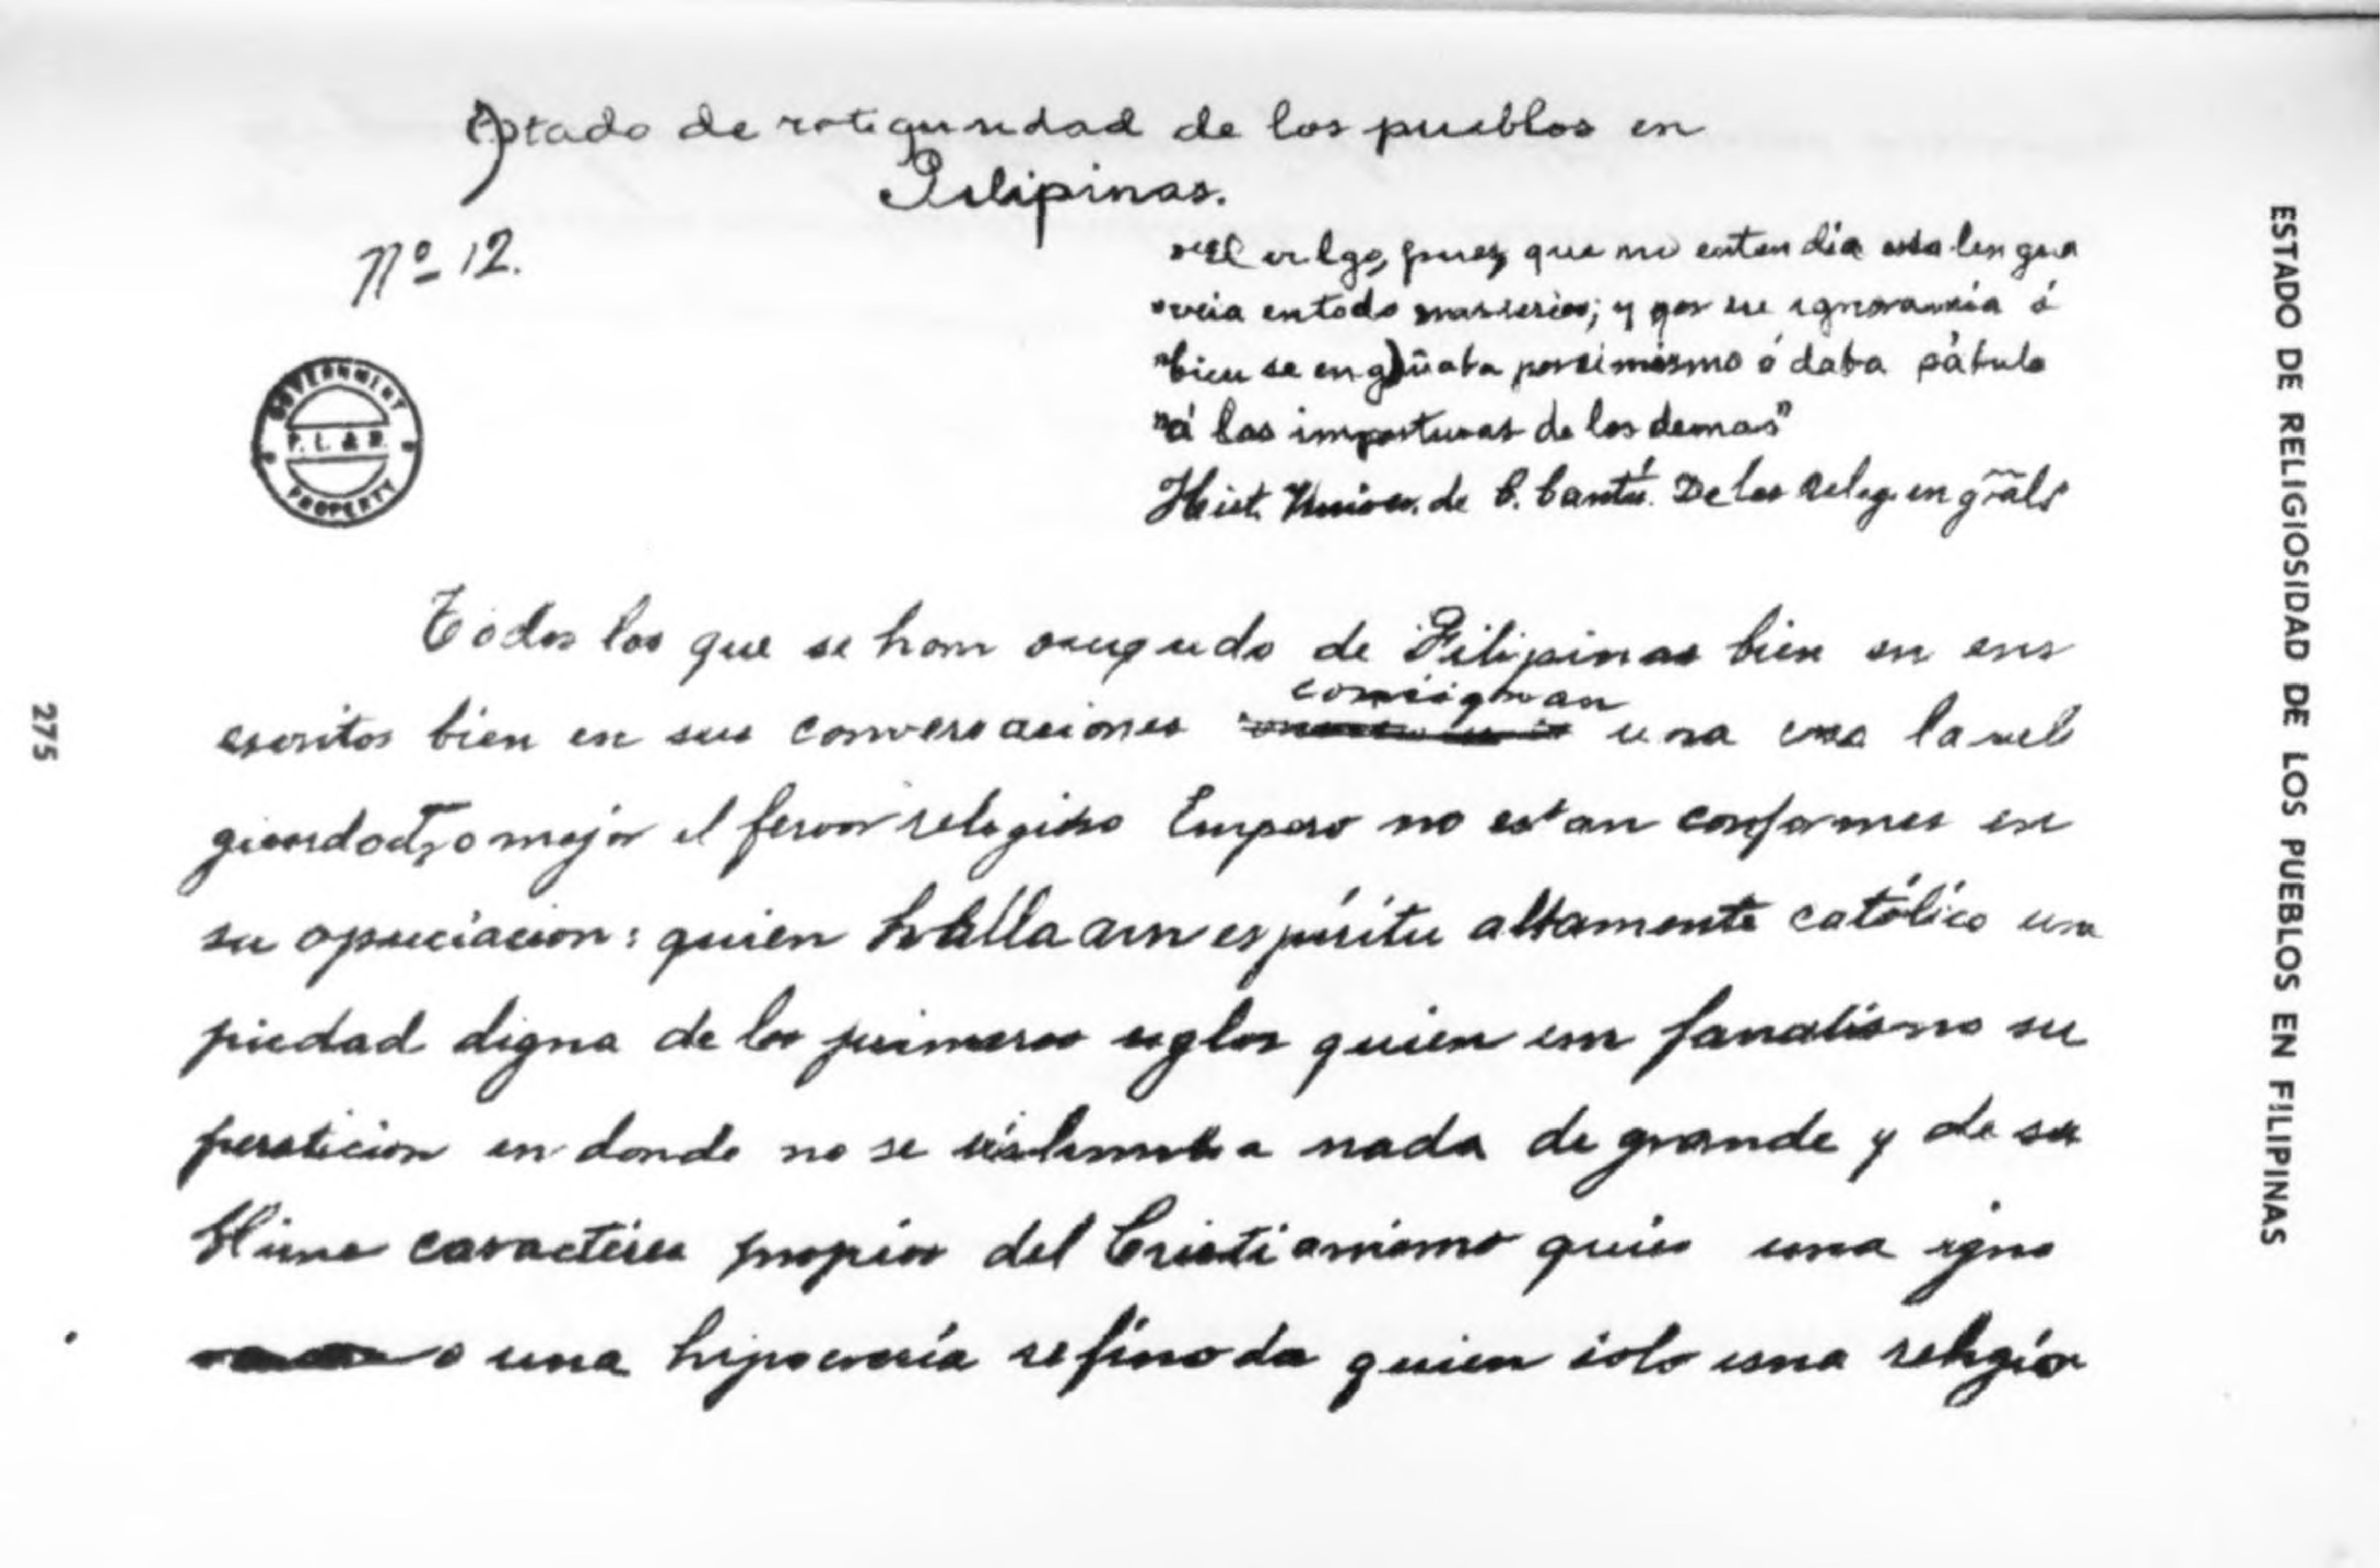 Estado de religiosidad de los pueblos en
Filipinas.
Nº 12.
"El vulgo, pues, que no entendia esta lengua
"veia en todo misterios; y por su ignorancia ó
"bien se engañaba por si mismo ó daba pábulo
"á las imposturas de los demas"
Hist. Univer. de C. Cantú. De las Relig. en grãls
GOVERNMENT
P. L. & M.
PROPERTY
Todos los que se han ocupado de Filipinas bien en sus
consignan
escritos bien en sus conversaciones una cosa la reli
giosidad, o mejor el fervor religioso Empero no estan conformes en
su apreciacion: quien halla un espíritu altamente católico una
piedad digna de los primeros siglos quien un fanatismo su
persticion en donde no se vislumbra nada de grande y de su
blime caracteres propios del Cristianismo quien una igno
o una hipocresía refinada quien solo una religio
275
ESTADO DE RELIGIOSIDAD DE LOS PUEBLOS EN FILIPINAS